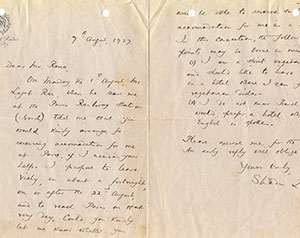 7th August 1927
Dear Mr. Rana
On Monday the 1st August Mr.
Lajpat Rai when he saw me
at the Paris Railway Station
told me that you
would kindly arrange for
securing accommodation for me
at Paris, if I needed your
help. I propose to leave
Vichy, in about a fortnight
on or after the 22nd August
and to reach Paris on that
very day. Could you kindly
let me know whether you
be able to reserve
accommodation for me in a
In this connection the follow
points may be borne in
(1) I am a strict vegetarian
and should like to have
in a hotel where I can
vegetarian
(2) I do not know French
would prefer a hotel
English is spoken.
Please excuse me for the
An early reply will oblige
Yours truly,